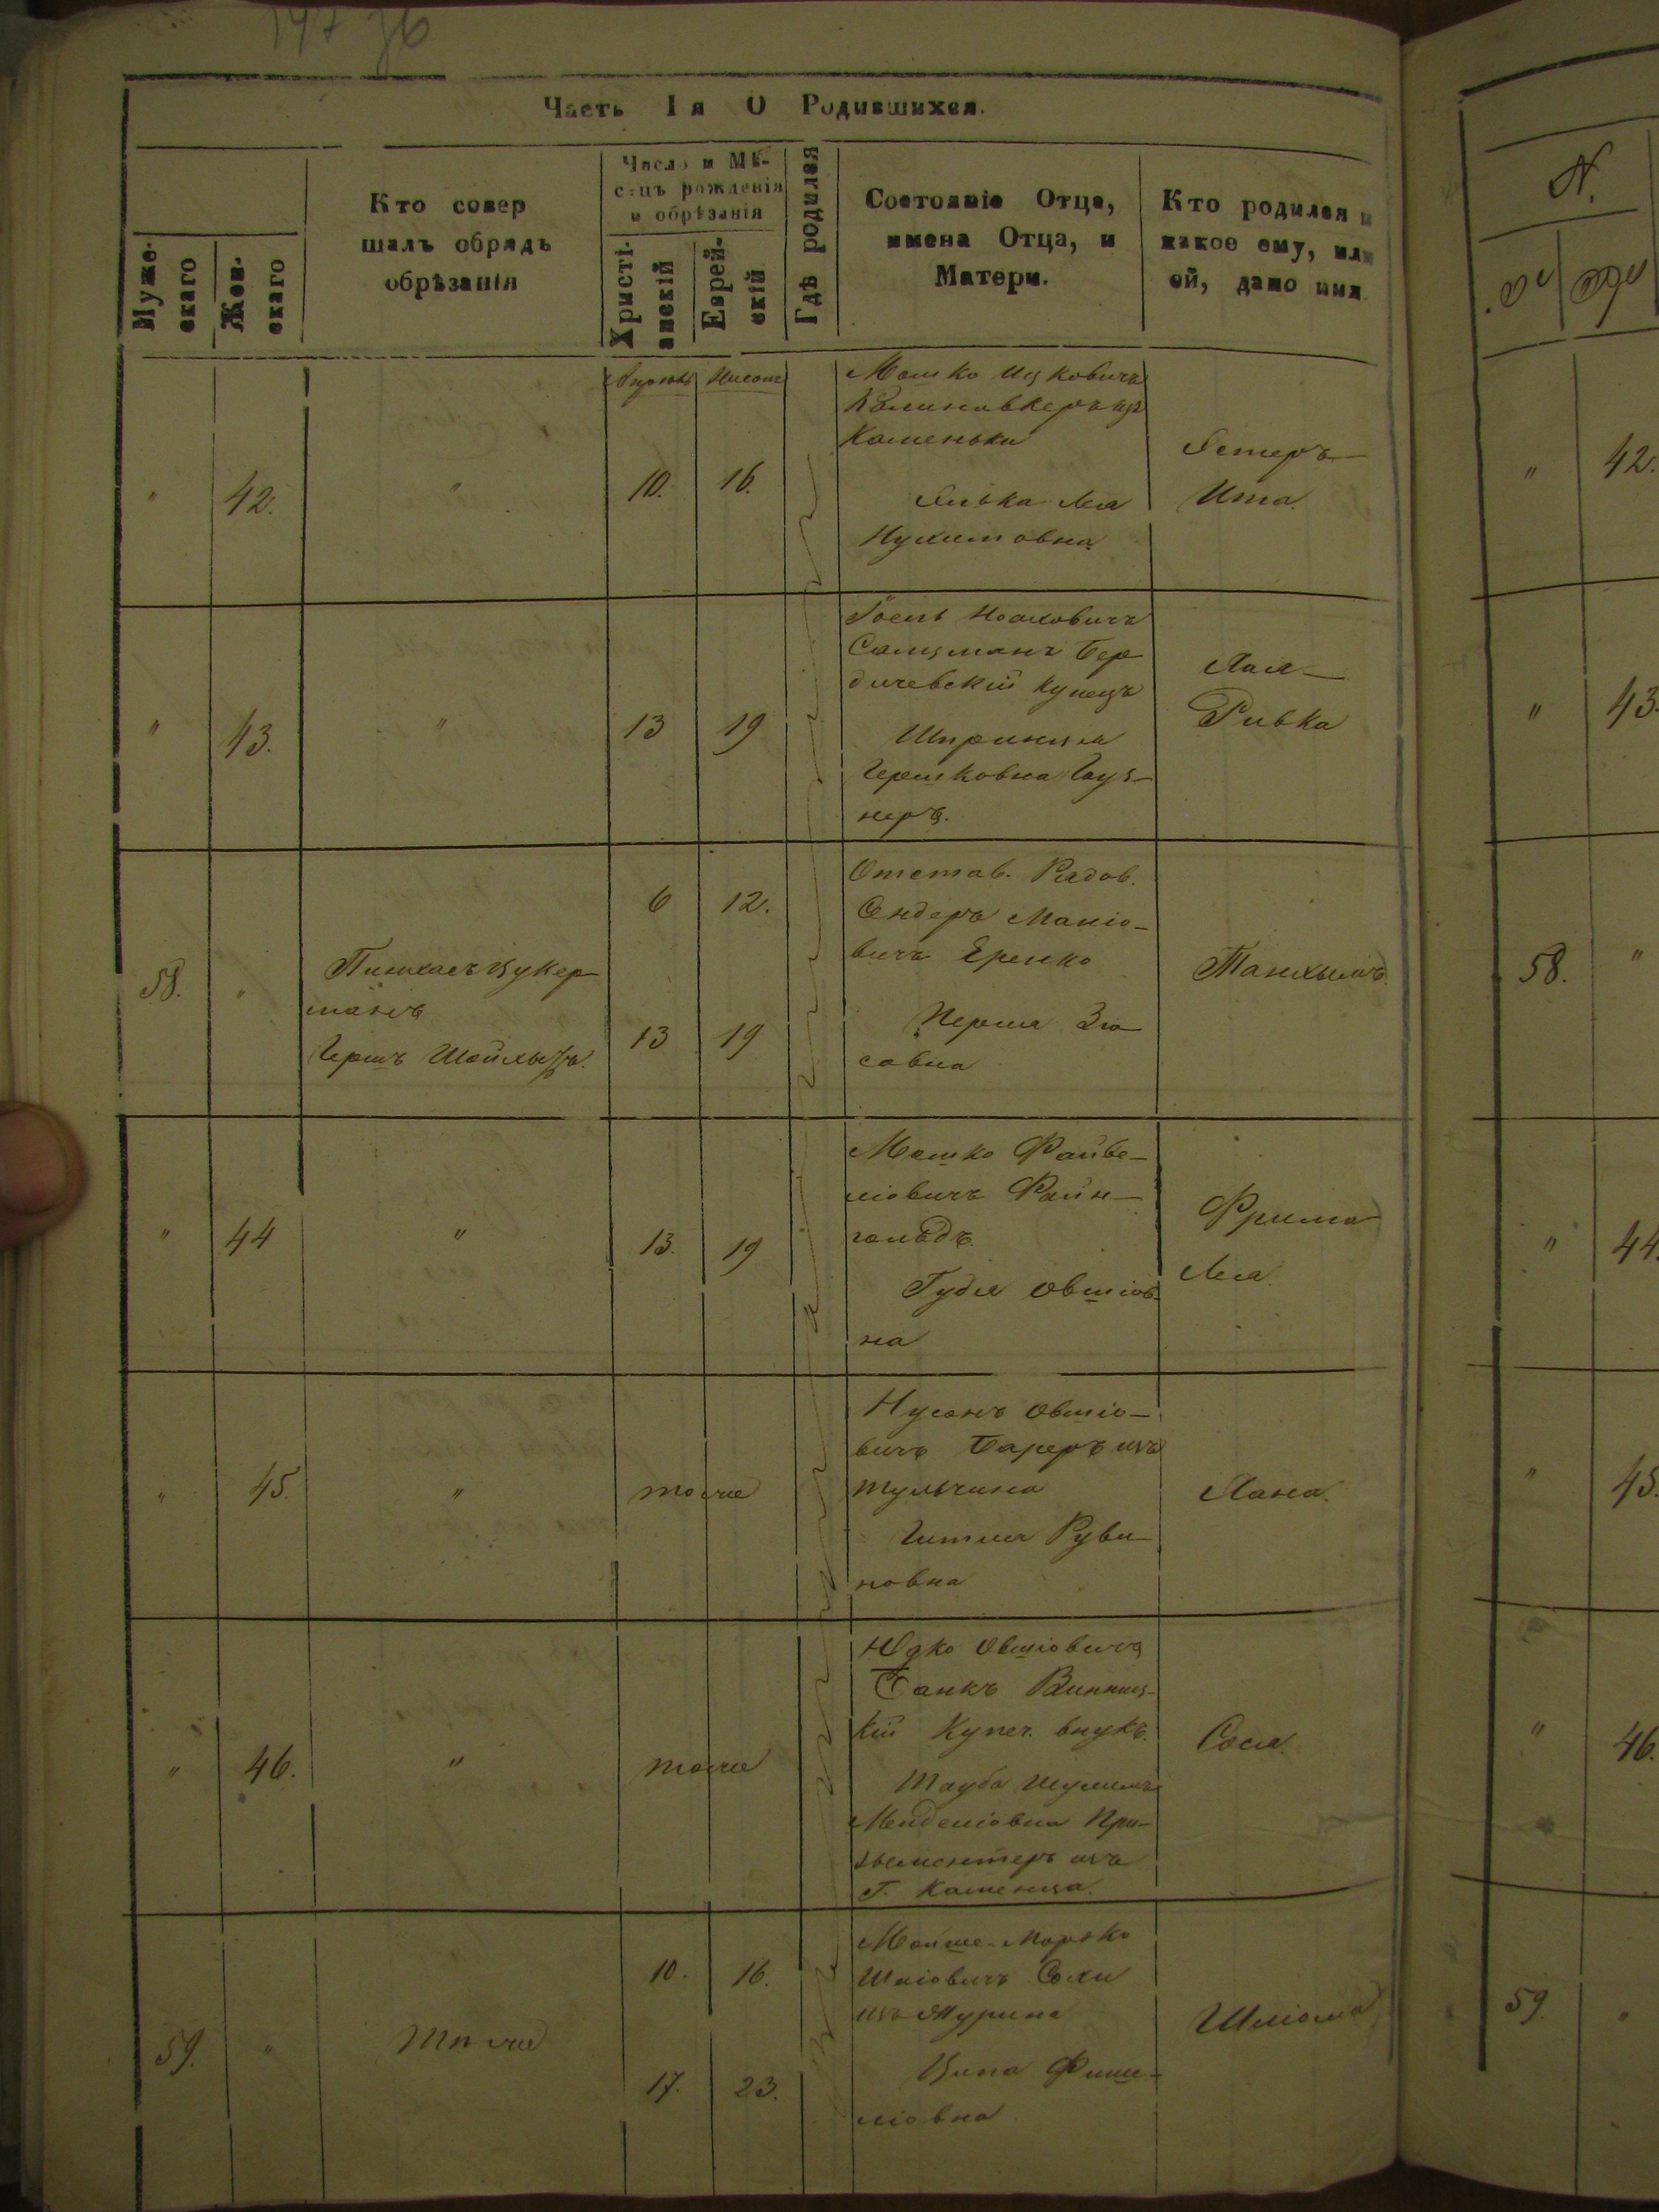 147 76
Часть Iя О Родившихся.
Муже-
скаго
Жен-
скаго
Кто совер
шалъ обрядъ
обрѣзанія
Число и Мѣ-
сяцъ рожденія
и обрѣзанія
Христі-
анскій
Еврей-
скій
Гдѣ родился
Состояніе Отца,
имена Отца, и
Матери.
Кто родился и
какое ему, или
ей, дано имя.
Апрель Нисонъ
" 42. " 10. 16.
Мошко Ицковичъ
изъ
Каменьки
Элька Лея
Нухимовна
Эстеръ
Ита.
" 43. " 13 19
Іосль Ноаховичъ
Салцманъ Бер
дичевскій Купецъ
Шпринца
Гершковна Гауз-
неръ.
Хая
Ривка
58. "
Пинхасъ Цукер
манъ
Гершъ
6 12.
13 19
Отстав. Рядов.
Сендеръ Маніо-
вичъ Еренко
Перля Зю
совна
Танхымъ
" 44 " 13. 19
Мошко Файве-
ліовичъ Файн-
гольдъ
Гудя Овшіов-
на
Фрима
Лея.
" 45. " тоже
Нусонъ Овшіо-
вичъ изъ
Тульчина
Гитля Руви
новна
Хана.
" 46. " тоже
Юдко Овшіовичъ
Банкъ Винниц-
кій Купеч. внукъ.
Тауба Шулимъ
Менделіовна При-
изъ
Г. Каменца.
Сося.
59. " Тоже
10. 16.
17. 23.
Мойше-Мордко
Шліовичъ
изъ
Ципа Фише-
ліовна
Шліома
N.
" 42.
" 43.
58. "
" 44.
" 45.
" 46.
59. "